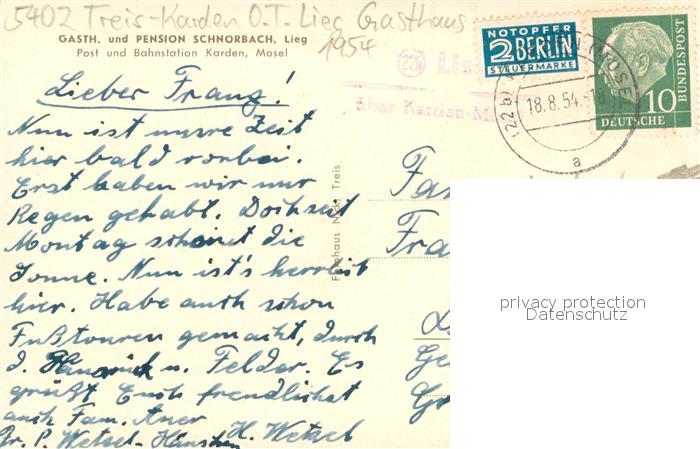 5402 Treis-Karden O.T. Lieg Gasthaus
1954
GASTH. und PENSION SCHNORBACH, Lieg
Post und Bahnstation Karden, Mosel
(22b) Lieg
über Karden-Mosel
NOTOPFER
2 BERLIN
STEUERMARKE
18.8.54
a
10
DEUTSCHE
BUNDESPOST
Lieber Franz!
Nun ist unsre Zeit
hier bald vorbei.
Erst haben wir nur
Regen gehabt. Doch seit
Montag scheint die
Sonne. Nun ist's herrlich
hier. Habe auch schon
Fußtouren gemacht, durch
d. Hunsrück u. Felder. Es
grüßt Euch freundlichst
auch Fam. Auer
H. Wetzel
Treis
Fa
Fra
privacy protection
Datenschutz